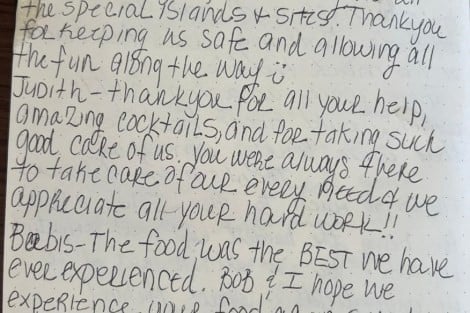 the special Islands & sites. Thankyou
for keeping us safe and allowing all
the fun along the way
Judith - thankyou for all your help,
amazing cocktails, and for taking such
good care of us. You were always there
to take care of our every need & we
appreciate all your hard work!!
Babis - The food was the BEST we have
ever experienced. BOB & I hope we
experience your food again